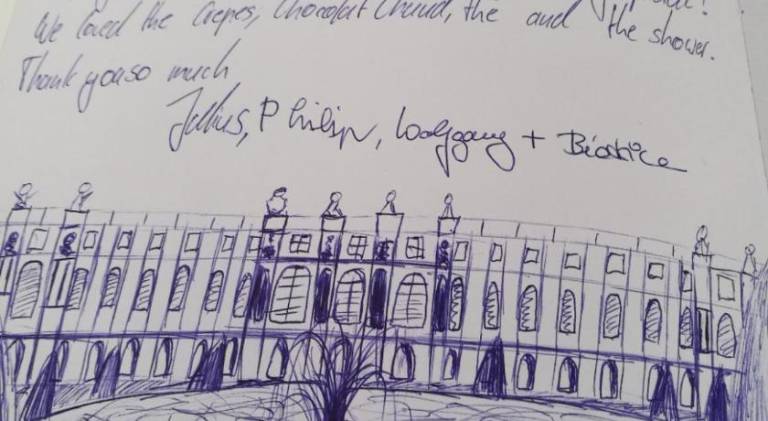 We loved the Crêpes, Chocolat Chaud, thé and the shower.
Thank you so much
Julius, Philip, Wolfgang + Béatrice